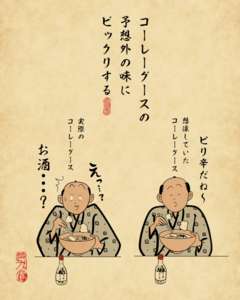 コーレーグースの
予想外の味に
ビックリする
ピリ辛だね〜
想像していた
コーレーグース
えっ…？
実際の
コーレーグース
お酒・・・？